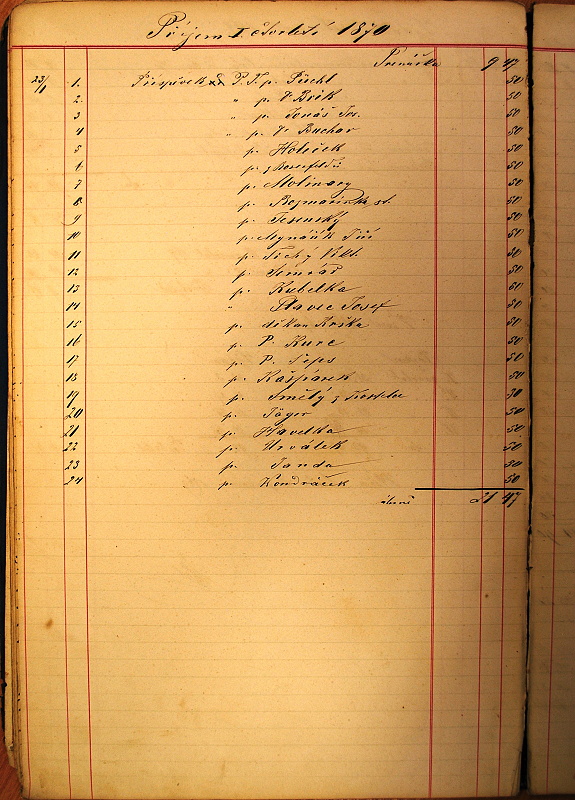 Příjem I čtvrtletí 1870
Přenáška 9 47
23/1 1. Příspěvek od P. T. p. Püchl 50
2. " p. V Brik 50
3 " p. Jonáš Jos. 50
4 " p. V. Buchar 50
5 p. Holeček 50
6 p. z Rosenfeldů 50
7 p. Molinary 50
8 p. Rozmarinka st. 50
9 p. Jesenský 50
10 p. Mynařík Jiří 50
11 p. Tichý Vikt. 50
12 p. Semrád 50
13 p. Kubelka 50
14 " Havec Josef 50
15 p. děkan Krška 50
16 p. P. Kurc 50
17 p. P. Seps 50
18 p. Kašpárek 50
19 p. Smělý z 50
20 p. Jäger 50
21 p. Havelka 50
22 p. Urválek 50
23 p. Janda 50
24 p. Kondráček 50
21 47